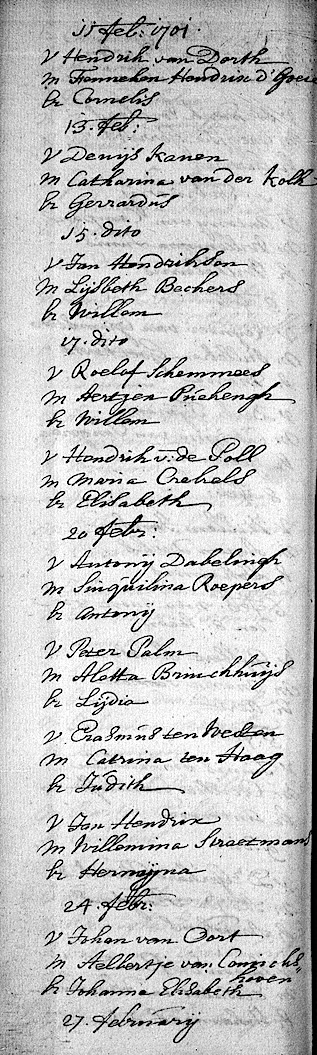 11 feb: 1701.
V Hendrik van Dorth
M Henneken Hendrix d'Goeie
k: Cornelis
13. feb:
V Denijs Kanen
M Catharina van der Kolk
k: Gerrardus
15. dito
V Jan Hendrikson
M Lijsbeth Bechers
k: Willem
17. dito
V Roelof Schemmees
M Aertjen
k: Willem
V Hendrik v: de Poll
M Maria Crebels
k: Elisabeth
20 febr:
V Antonij Dabelingh
M Sinquilina Roepers
k: Antonij
V Peter Palm
M Aletta Brinchhuijs
k: Lijdia
V Erasmus ten Westen
M Catrina ten Haag
k: Judith
V Jan Hendrix
M Willemina Straetmans
k: Hermijna
24. febr:
V Johan van Oort
M Aelbertje van Connichs=
hoven
k: Johanna Elisabeth
27. februarij